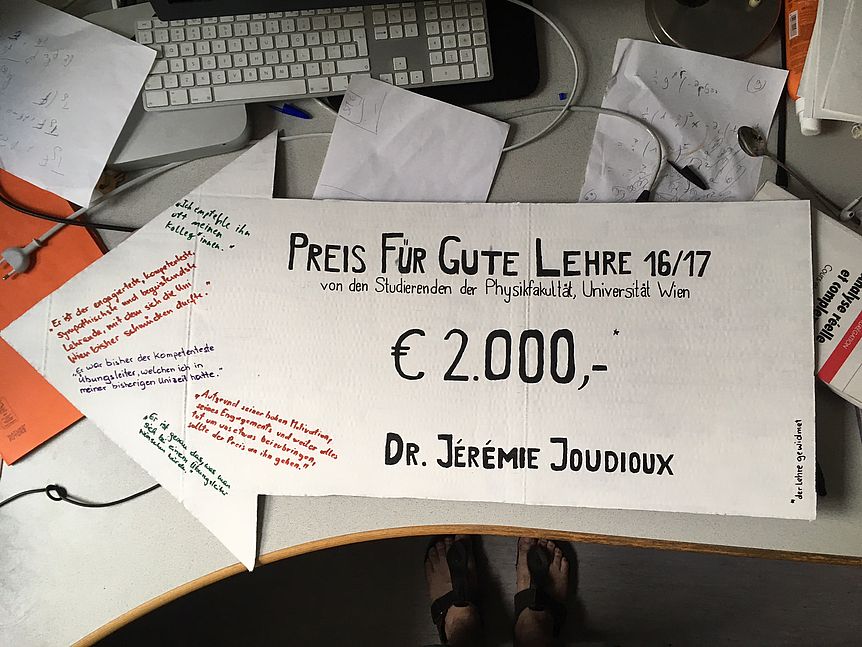 PREIS FÜR GUTE LEHRE 16/17
von den Studierenden der Physikfakultät, Universität Wien
€ 2.000,-*
DR. JÉRÉMIE JOUDIOUX
*der Lehre gewidmet
"Ich empfehle ihn
oft meinen
Kolleg*innen."
"Er ist der engagierteste, kompetenteste
sympathischste und begeisterndste
Lehrende, mit dem sich die Uni
Wien bisher schmücken durfte."
"Er war bisher der kompetenteste
Übungsleiter, welchen ich in
meiner bisherigen Unizeit hatte."
"Aufgrund seiner hohen Motivation,
seines Engagements und weiter alles
tut um was etwas beizubringen,
sollte der Preis an ihn gehen."
"Er ist genau das, was man
sich bei einem Übungsleiter
wünschen würde."
analyse réelle
et complexe